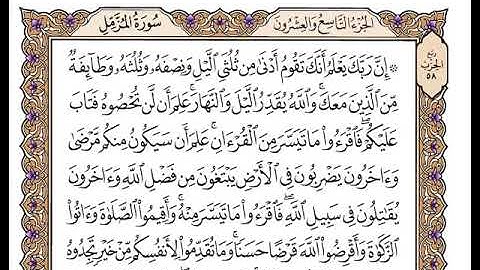 سُورَةُ المُزَّمِّل
الجُزْءُ التَّاسِعُ وَالعِشْرُونَ
رُبْع
الحِزْب
٥٨
۞ إِنَّ رَبَّكَ يَعْلَمُ أَنَّكَ تَقُومُ أَدْنَىٰ مِن ثُلُثَيِ ٱلَّيْلِ وَنِصْفَهُۥ وَثُلُثَهُۥ وَطَآئِفَةٌ
مِّنَ ٱلَّذِينَ مَعَكَۚ وَٱللَّهُ يُقَدِّرُ ٱلَّيْلَ وَٱلنَّهَارَۚ عَلِمَ أَن لَّن تُحْصُوهُ فَتَابَ
عَلَيْكُمْۖ فَٱقْرَءُوا۟ مَا تَيَسَّرَ مِنَ ٱلْقُرْءَانِۚ عَلِمَ أَن سَيَكُونُ مِنكُم مَّرْضَىٰ
وَءَاخَرُونَ يَضْرِبُونَ فِى ٱلْأَرْضِ يَبْتَغُونَ مِن فَضْلِ ٱللَّهِ وَءَاخَرُونَ
يُقَٰتِلُونَ فِى سَبِيلِ ٱللَّهِۖ فَٱقْرَءُوا۟ مَا تَيَسَّرَ مِنْهُۚ وَأَقِيمُوا۟ ٱلصَّلَوٰةَ وَءَاتُوا۟
ٱلزَّكَوٰةَ وَأَقْرِضُوا۟ ٱللَّهَ قَرْضًا حَسَنًاۚ وَمَا تُقَدِّمُوا۟ لِأَنفُسِكُم مِّنْ خَيْرٍ تَجِدُوهُ